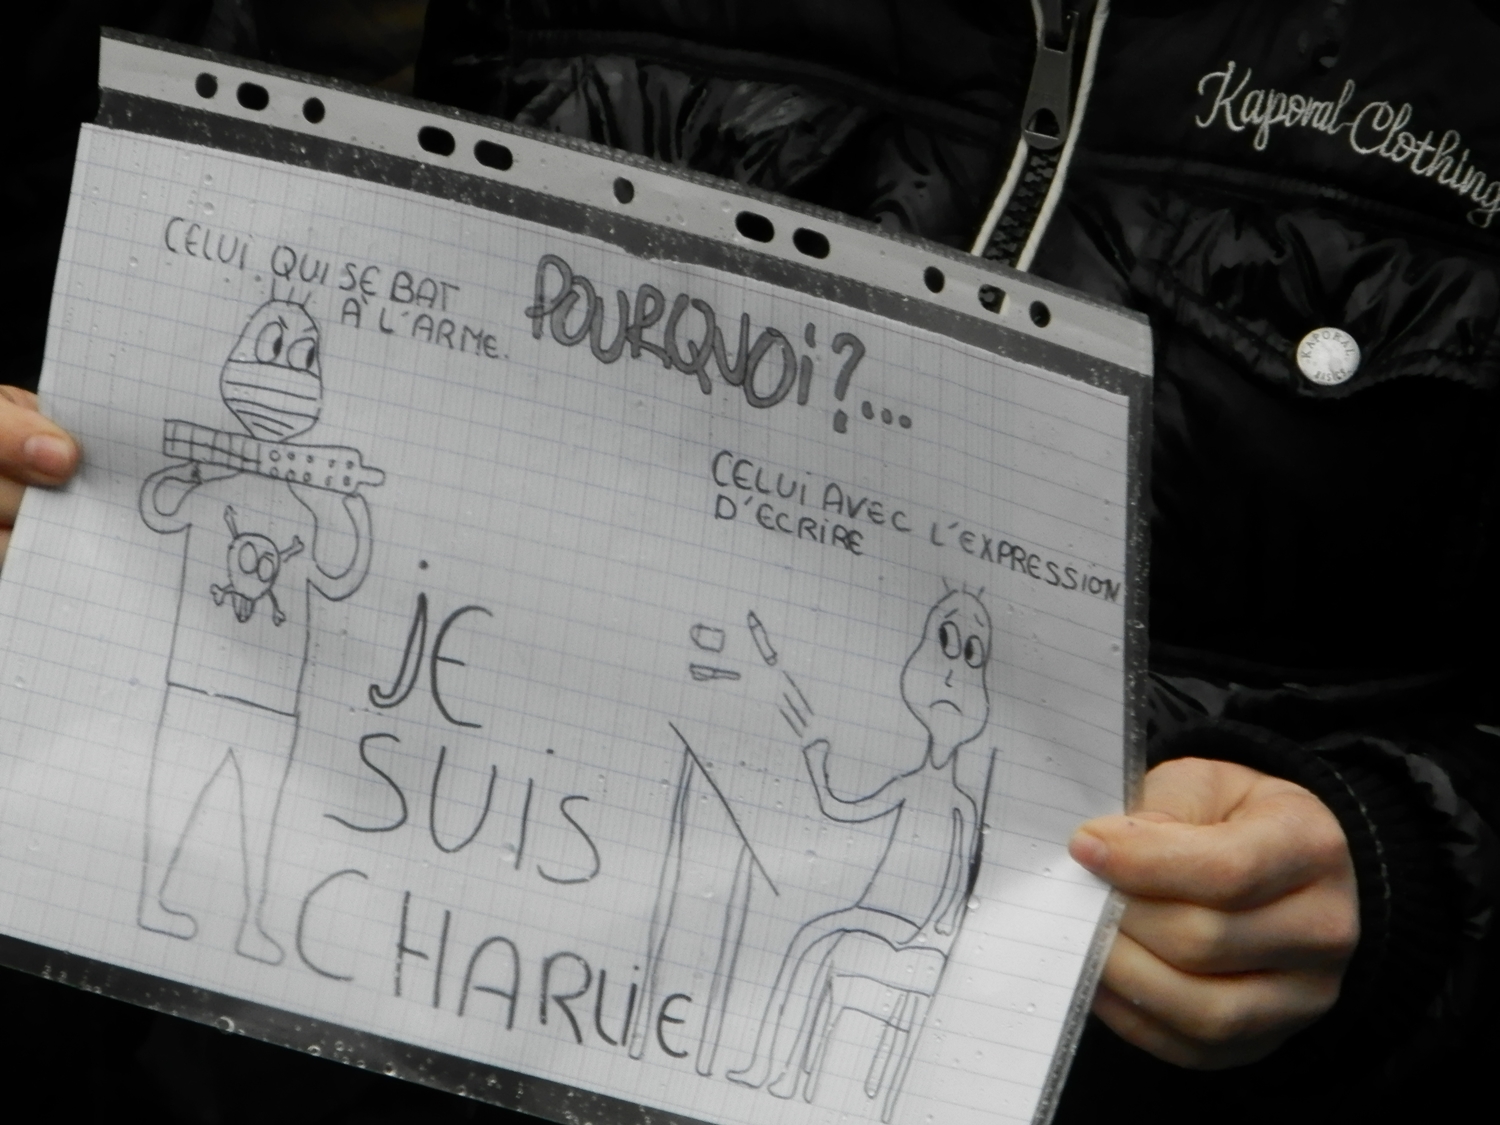 Kaporal Clothing
KAPORAL
CELUI QUI SE BAT
À L'ARME.
POURQUOI?...
CELUI AVEC L'EXPRESSION
D'ECRIRE
JE
SUIS
CHARLIE